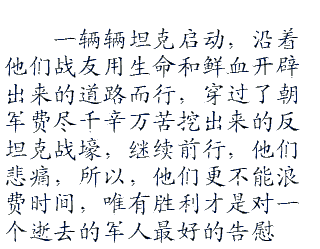 一辆辆坦克启动，沿着
他们战友用生命和鲜血开辟
出来的道路而行，穿过了朝
军费尽千辛万苦挖出来的反
坦克战壕，继续前行，他们
悲痛，所以，他们更不能浪
费时间，唯有胜利才是对一
个逝去的军人最好的告慰